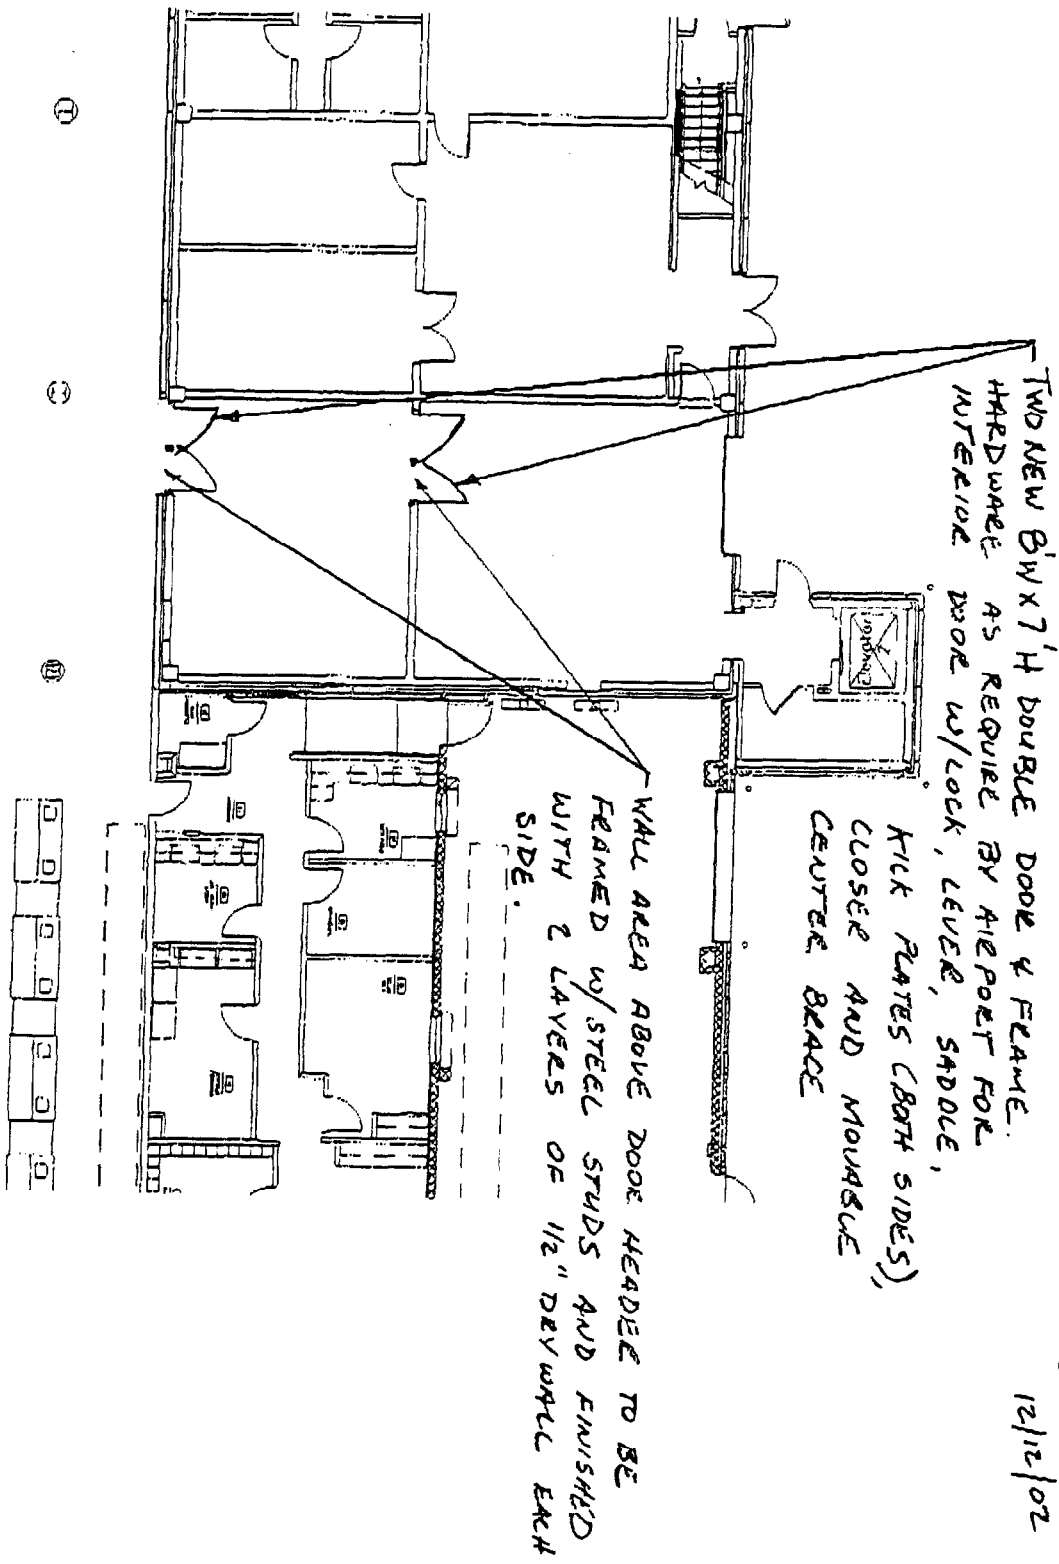 12/12/02
TWO NEW 8'W X 7'H DOUBLE DOOR & FRAME.
HARDWARE AS REQUIRE BY AIRPORT FOR
INTERIOR DOOR W/LOCK, LEVER, SADDLE,
KICK PLATES (BOTH SIDES),
CLOSER AND MOVABLE
CENTER BRACE
Elevator
2
WALL AREA ABOVE DOOR HEADER TO BE
FRAMED W/STEEL STUDS AND FINISHED
WITH 2 LAYERS OF 1/2" DRYWALL EACH
SIDE.